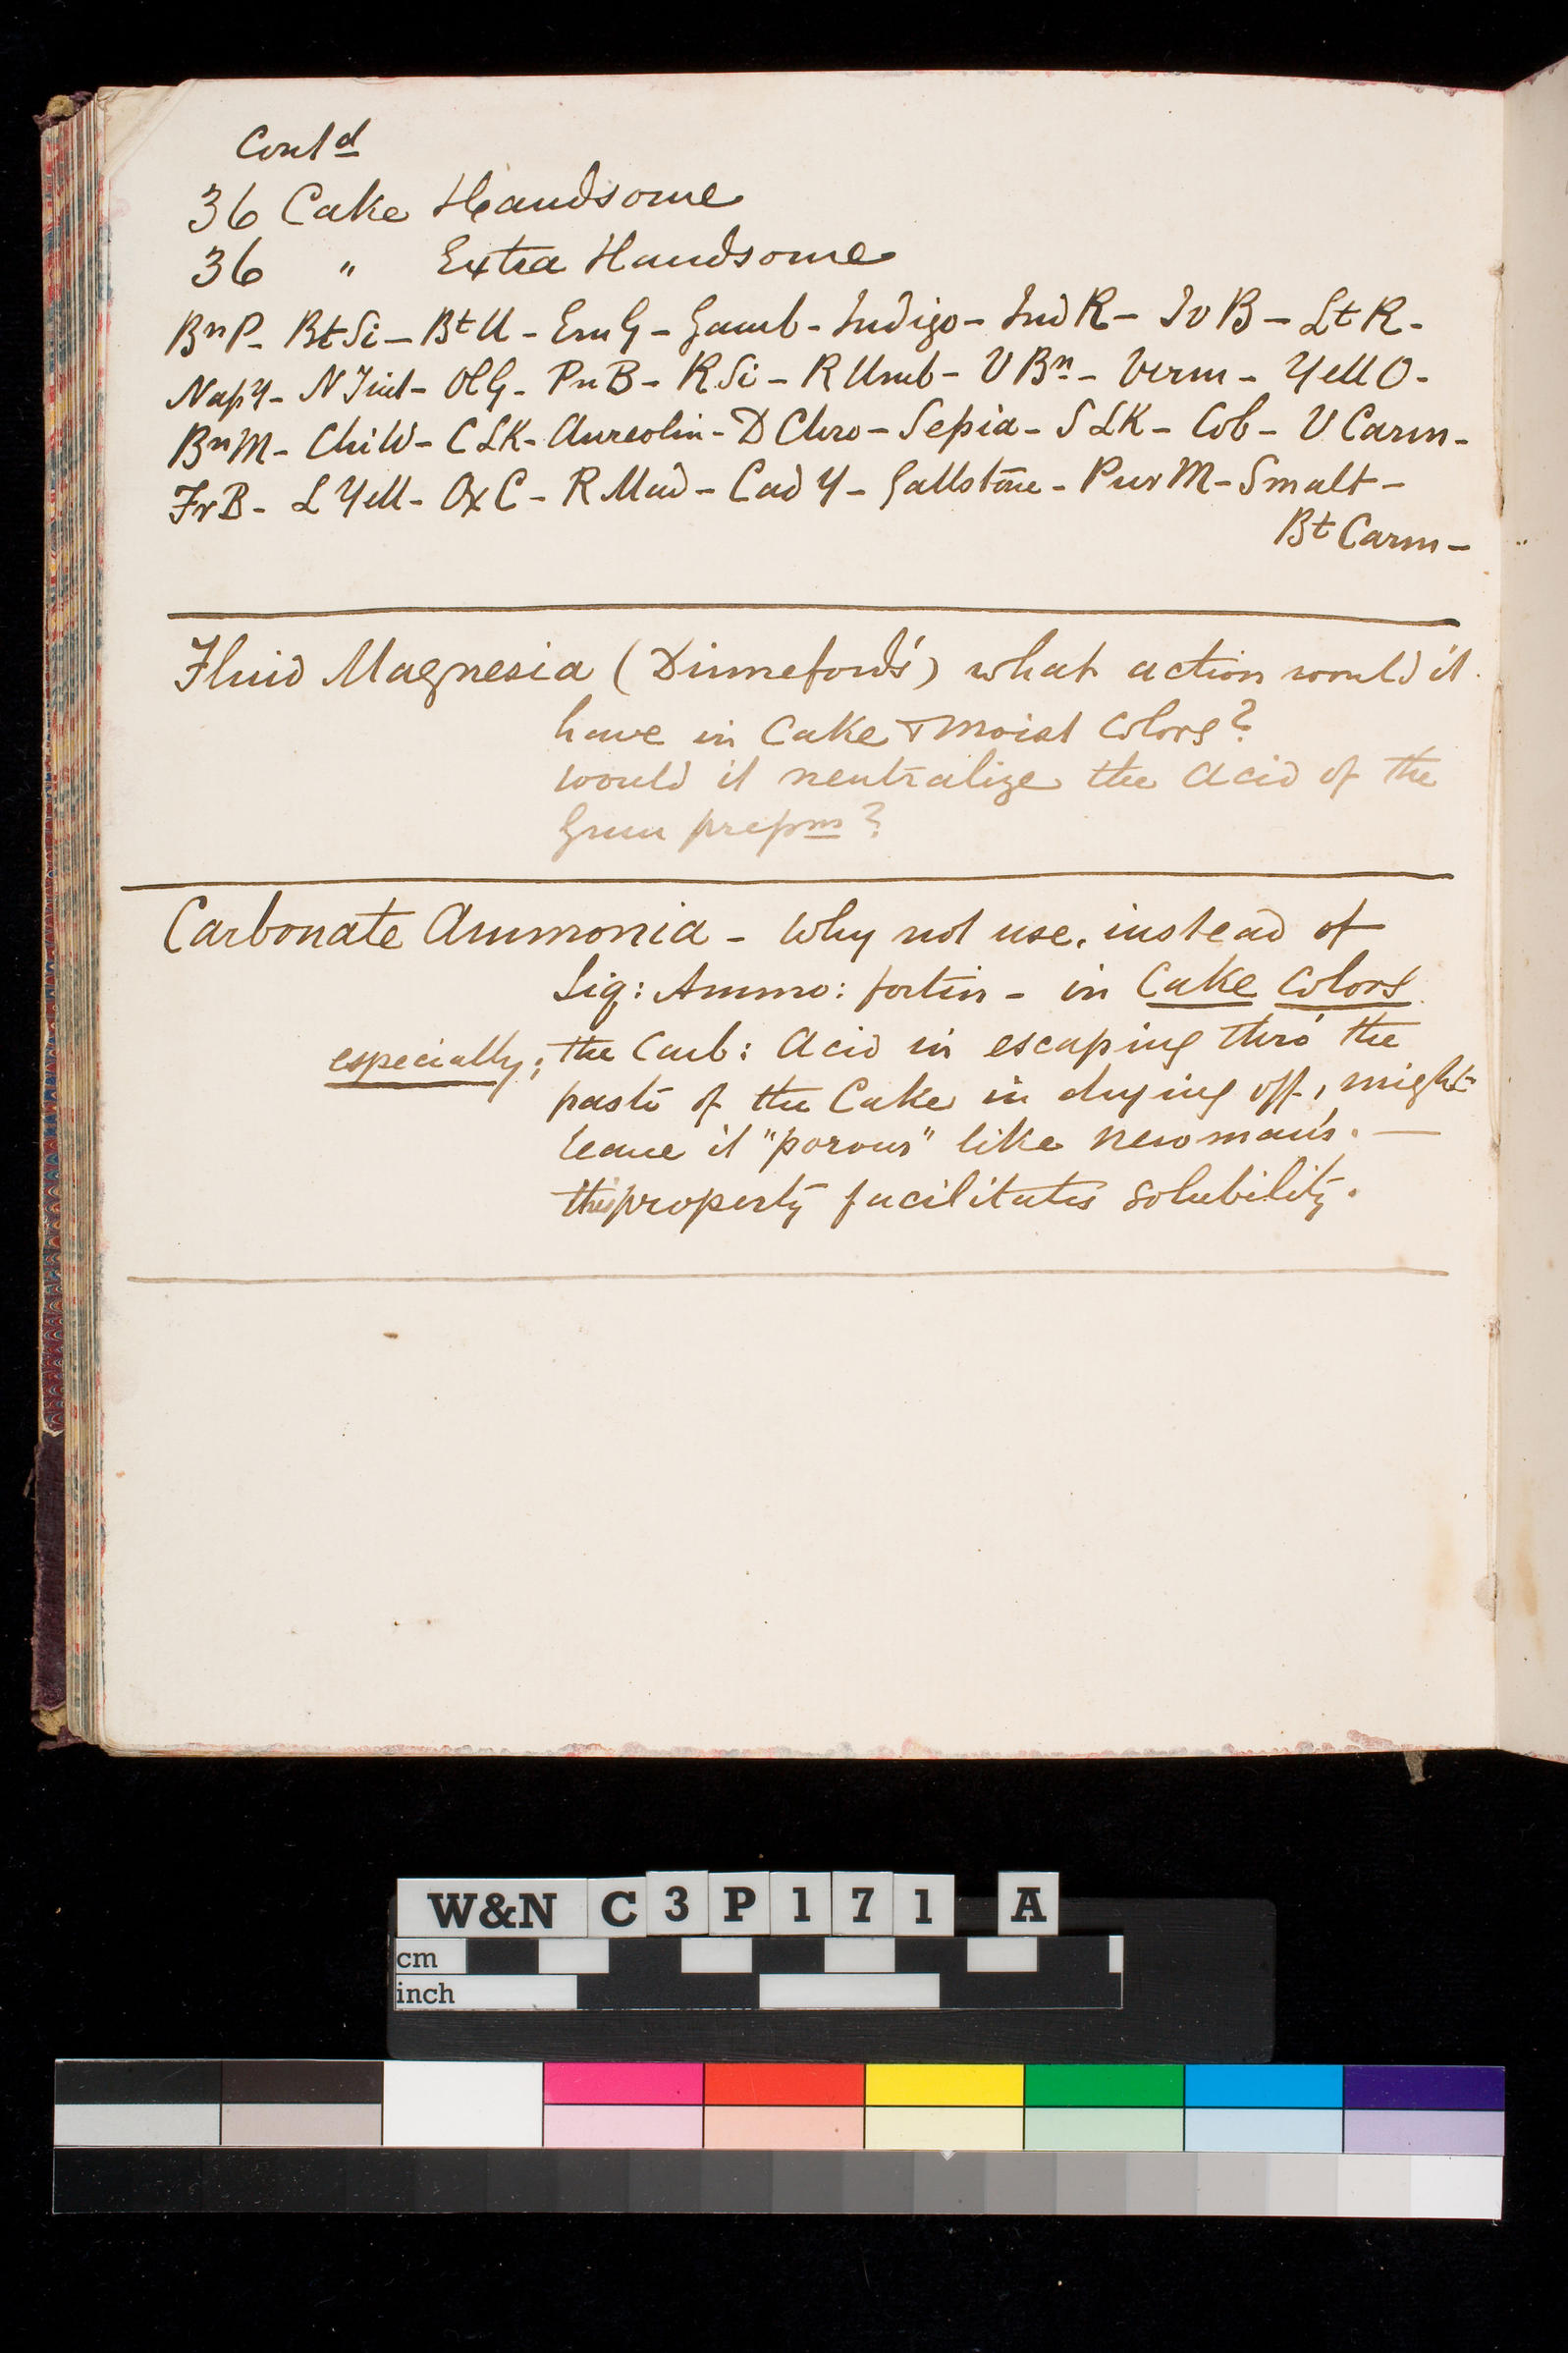 Contd
36 Cake Handsome
36 " Extra Handsome
Bn P - Bt Si - Bt U - Em G - Gamb - Indigo - Ind R - Iv B - Lt R -
Nap Y - N Tint - Ol G - Pn B - R Si - R Umb - V Bn - Verm - Yell O -
Bn M - Chi W - C LK - Aureolin - D Chro - Sepia - S LK - Cob - V Carm -
Fr B - L Yell - Ox C - R Mad - Cad Y - Gallstone - Pur M - Smalt -
Bt Carm -
Fluid Magnesia (Dinneford's) what action would it
have in Cake & Moist Colors?
would it neutralize the Acid of the
Gum prepns?
Carbonate Ammonia - Why not use, instead of
Liq: Ammo: fortis - in Cake Colors
especially; the Carb: Acid in escaping thro' the
paste of the Cake in drying off, might
leave it "porous" like Newman's. —
this property facilitates solubility.
W&N C3P171 A
cm
inch